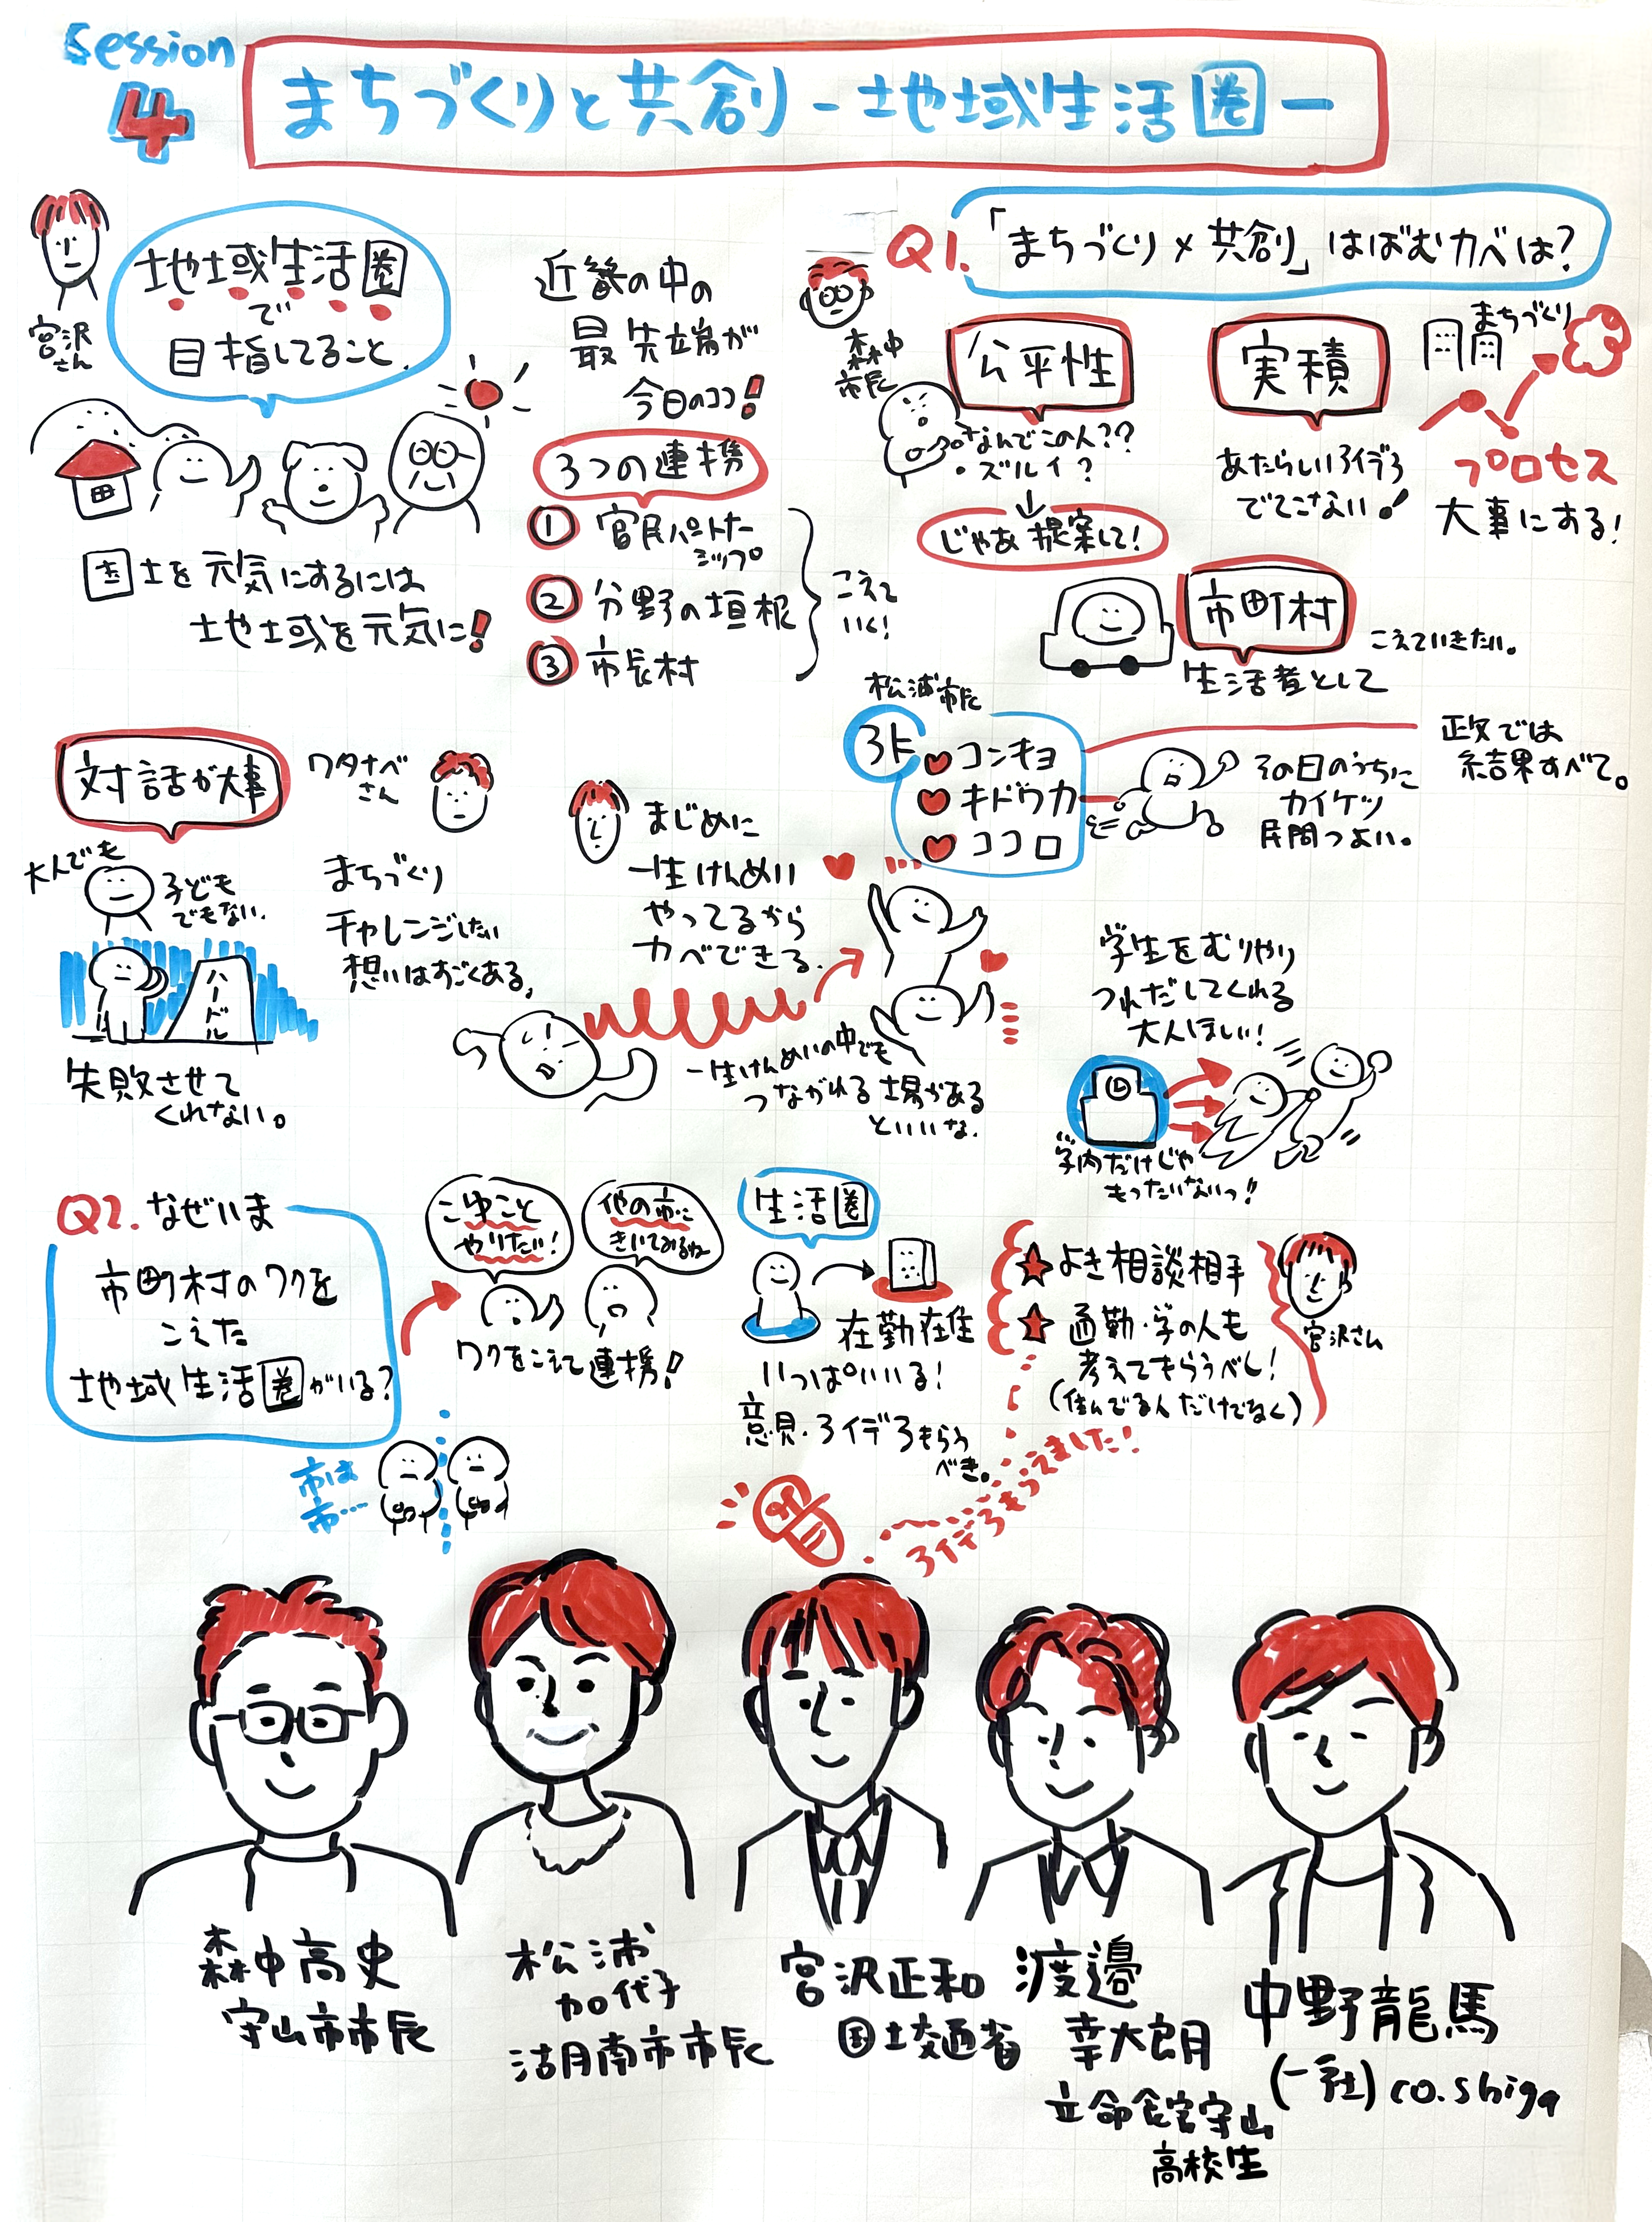 Session
4
まちづくりと共創 -地域生活圏-
宮沢
さん
地域生活圏
で
目指してること.
近畿の中の
最先端が
今日のココ!
3つの連携
① 官民パートナー
シップ
② 分野の垣根
③ 市長村
こえて
いく!
国土を元気にするには
地域を元気に!
Q1.「まちづくり×共創」はばむカベは?
森中
市長
公平性
・なんでこの人??
・ズルイ?
↓
じゃあ提案して!
実積
あたらしいアイデア
でてこない!
まちづくり
プロセス
大事にする!
市町村
こえていきたい。
生活者として
松浦市長
3K
コンキョ
キドウカ
ココロ
正攵では
結果すべて。
その日のうちに
カイケツ
民間つよい。
対話が大事
大人でも
子ども
でもない.
ハードル
失敗させて
くれない。
ワタナベ
さん
まちづくり
チャレンジしたい
想いはすごくある。
まじめに
一生けんめい
やってるから
カベできる.
一生けんめいの中でも
つながれる場がある
といいな.
学生をむりやり
つれだしてくれる
大人ほしい!
学内だけじゃ
もったいないっ!!
Q2.なぜいま
市町村のワクを
こえた
地域生活圏がいる?
こゆこと
やりたい!
他の市に
きいてみるね
ワクをこえて連携!
市は
市…
生活圏
在勤在住
いっぱいいる!
意見・アイデアもらう
べき。
★よき相談相手
★通勤・学の人も
考えてもらうべし!
(住んでる人だけでなく)
宮沢さん
アイデアもらえました!
森中高史
守山市市長
松浦
加代子
湖南市市長
宮沢正和
国土交通省
渡邉
幸大朗
立命館守山
高校生
中野龍馬
(一社)co.shiga